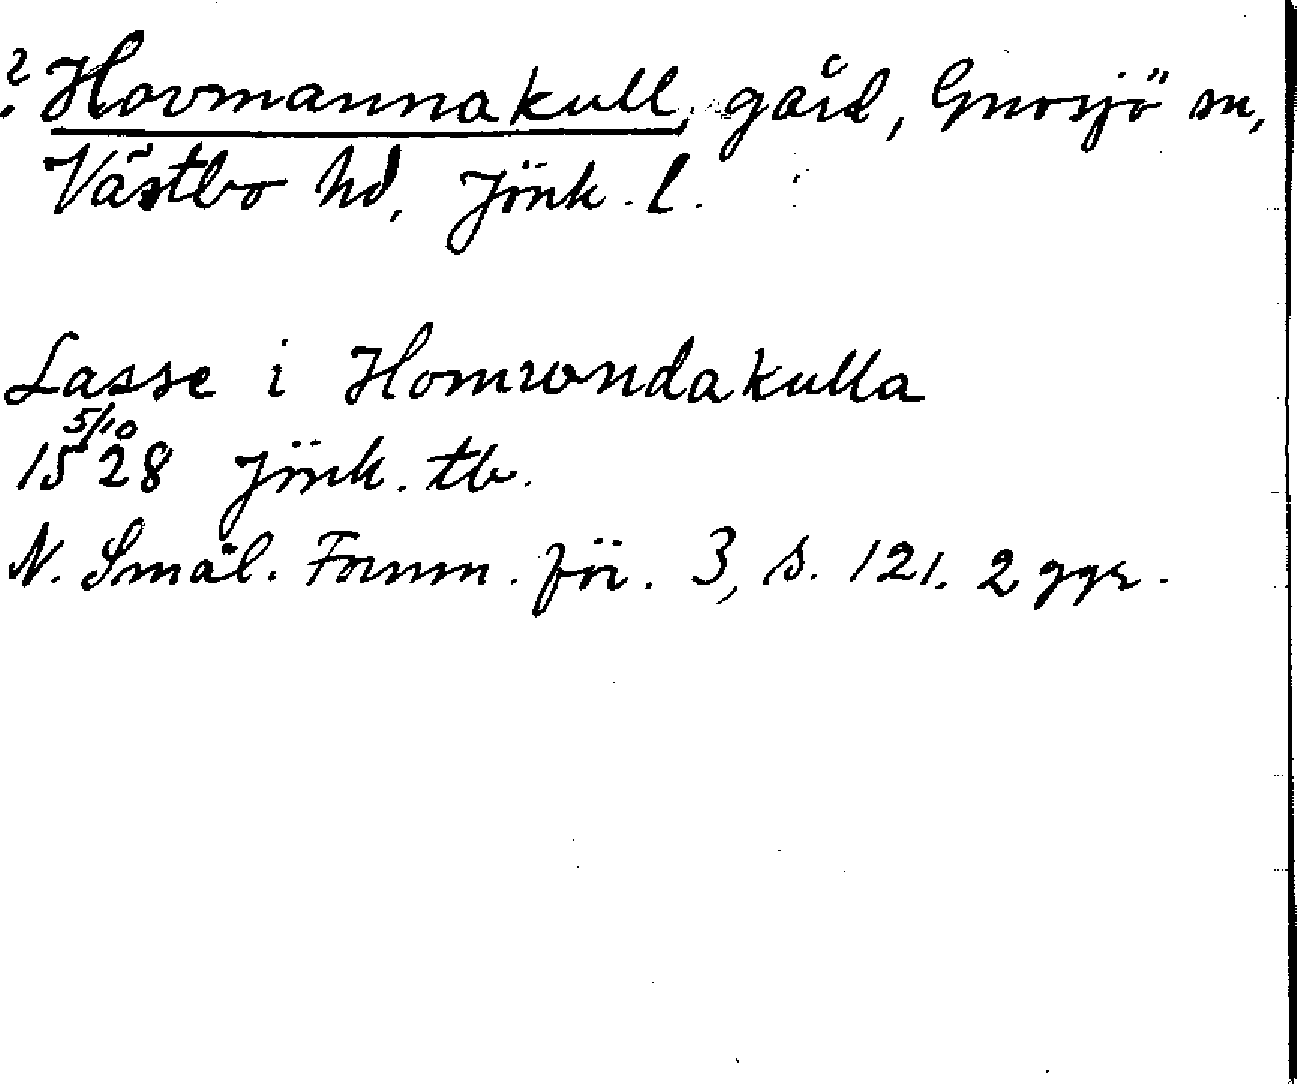 ? Hovmannakull, gård, Gnosjö sn,
Västbo hd, Jönk. l.
Lasse i Homwndakulla
5/10
1528 Jönk. tb.
N. Smål. Fornm. för. 3, s. 121. 2 ggr.